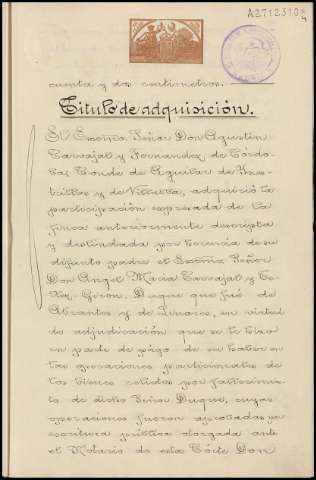 A2712310
cuenta y dos centímetros.
Título de adquisición.
El Excmo. Señor Don Agustin
Carvajal y Fernandez de Córdo-
ba, Conde de Aguilar de Ines-
trillas y de Villalba, adquirió la
participación expresada de la
finca anteriormente descripta
y deslindada por herencia de su
difunto padre el Excmo Señor
Don Angel Maria Carvajal y Te-
llez-Giron, Duque que fué de
Abrantes y de Linares, en virtud
de adjudicación que se le hizo
en parte de pago de su haber en
las operaciones particionales de
los bienes relictos por fallecimien-
to de dicho Señor Duque, cuyas
operaciones fueron aprobadas por
escritura pública otorgada ante
el Notario de esta Córte Don